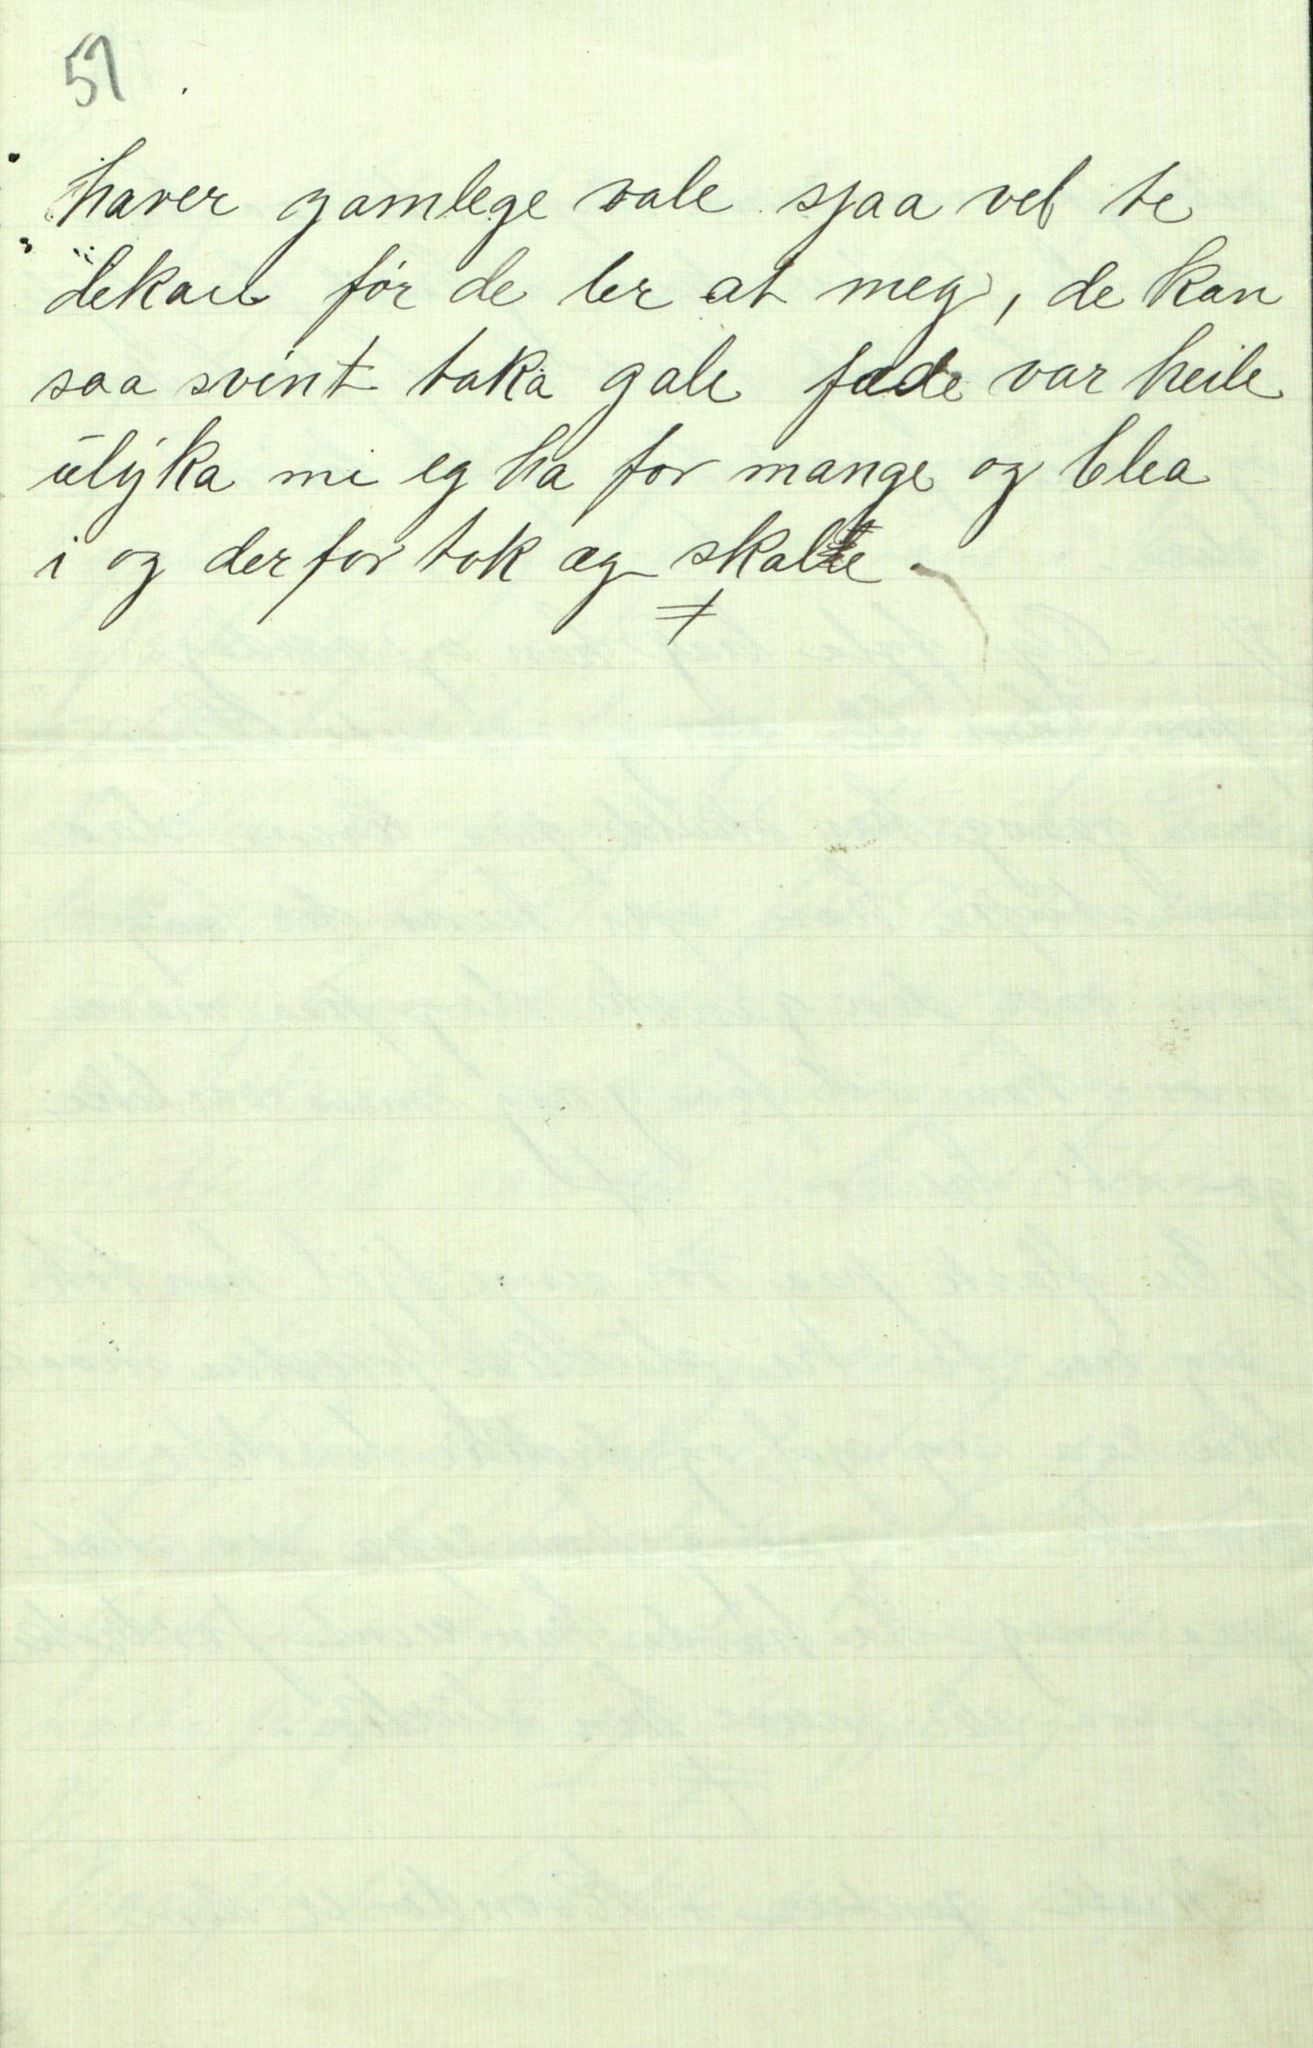 57
haver gamlege vale sjaa vel te
dekan før de ler at meg, de kan
saa svint taka gale fade var heile
ulyka mi eg ha for mange og blea
i og derfor tok æg skalle.